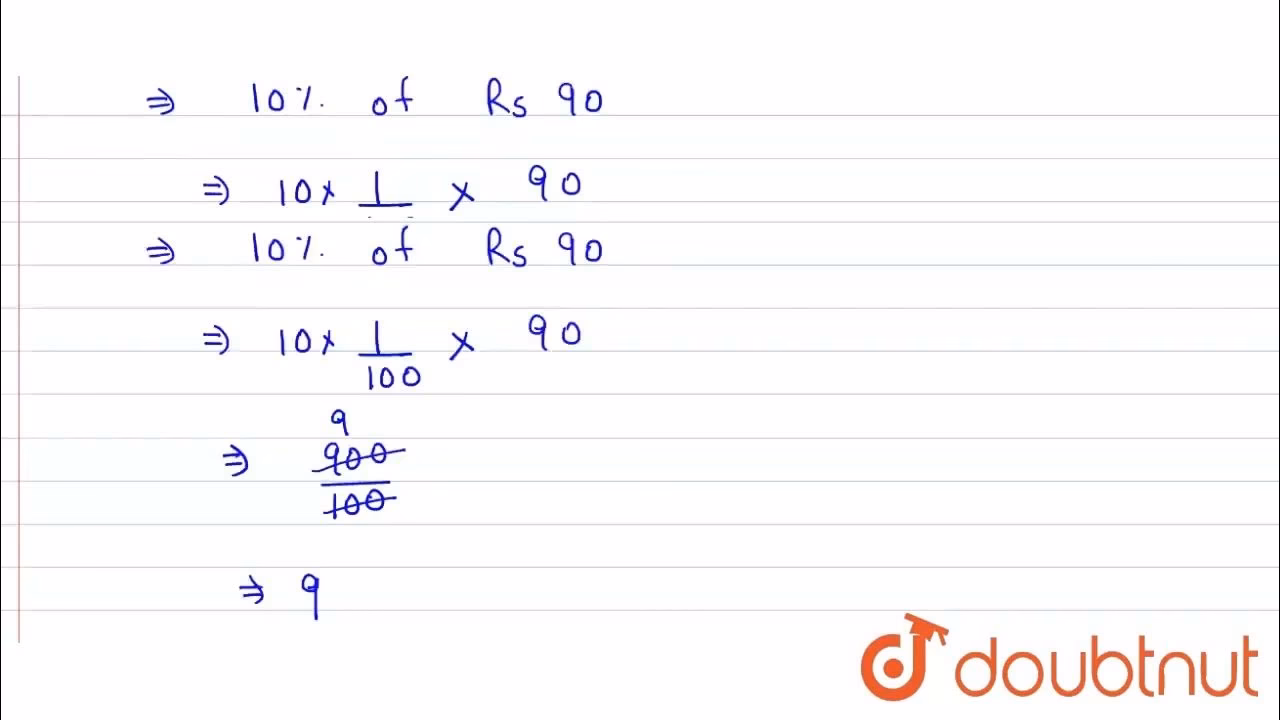 ⇒ 10% of Rs 90
⇒ 10 × 1/ × 90
⇒ 10% of Rs 90
⇒ 10 × 1/100 × 90
9
⇒ 900/100
⇒ 9
doubtnut